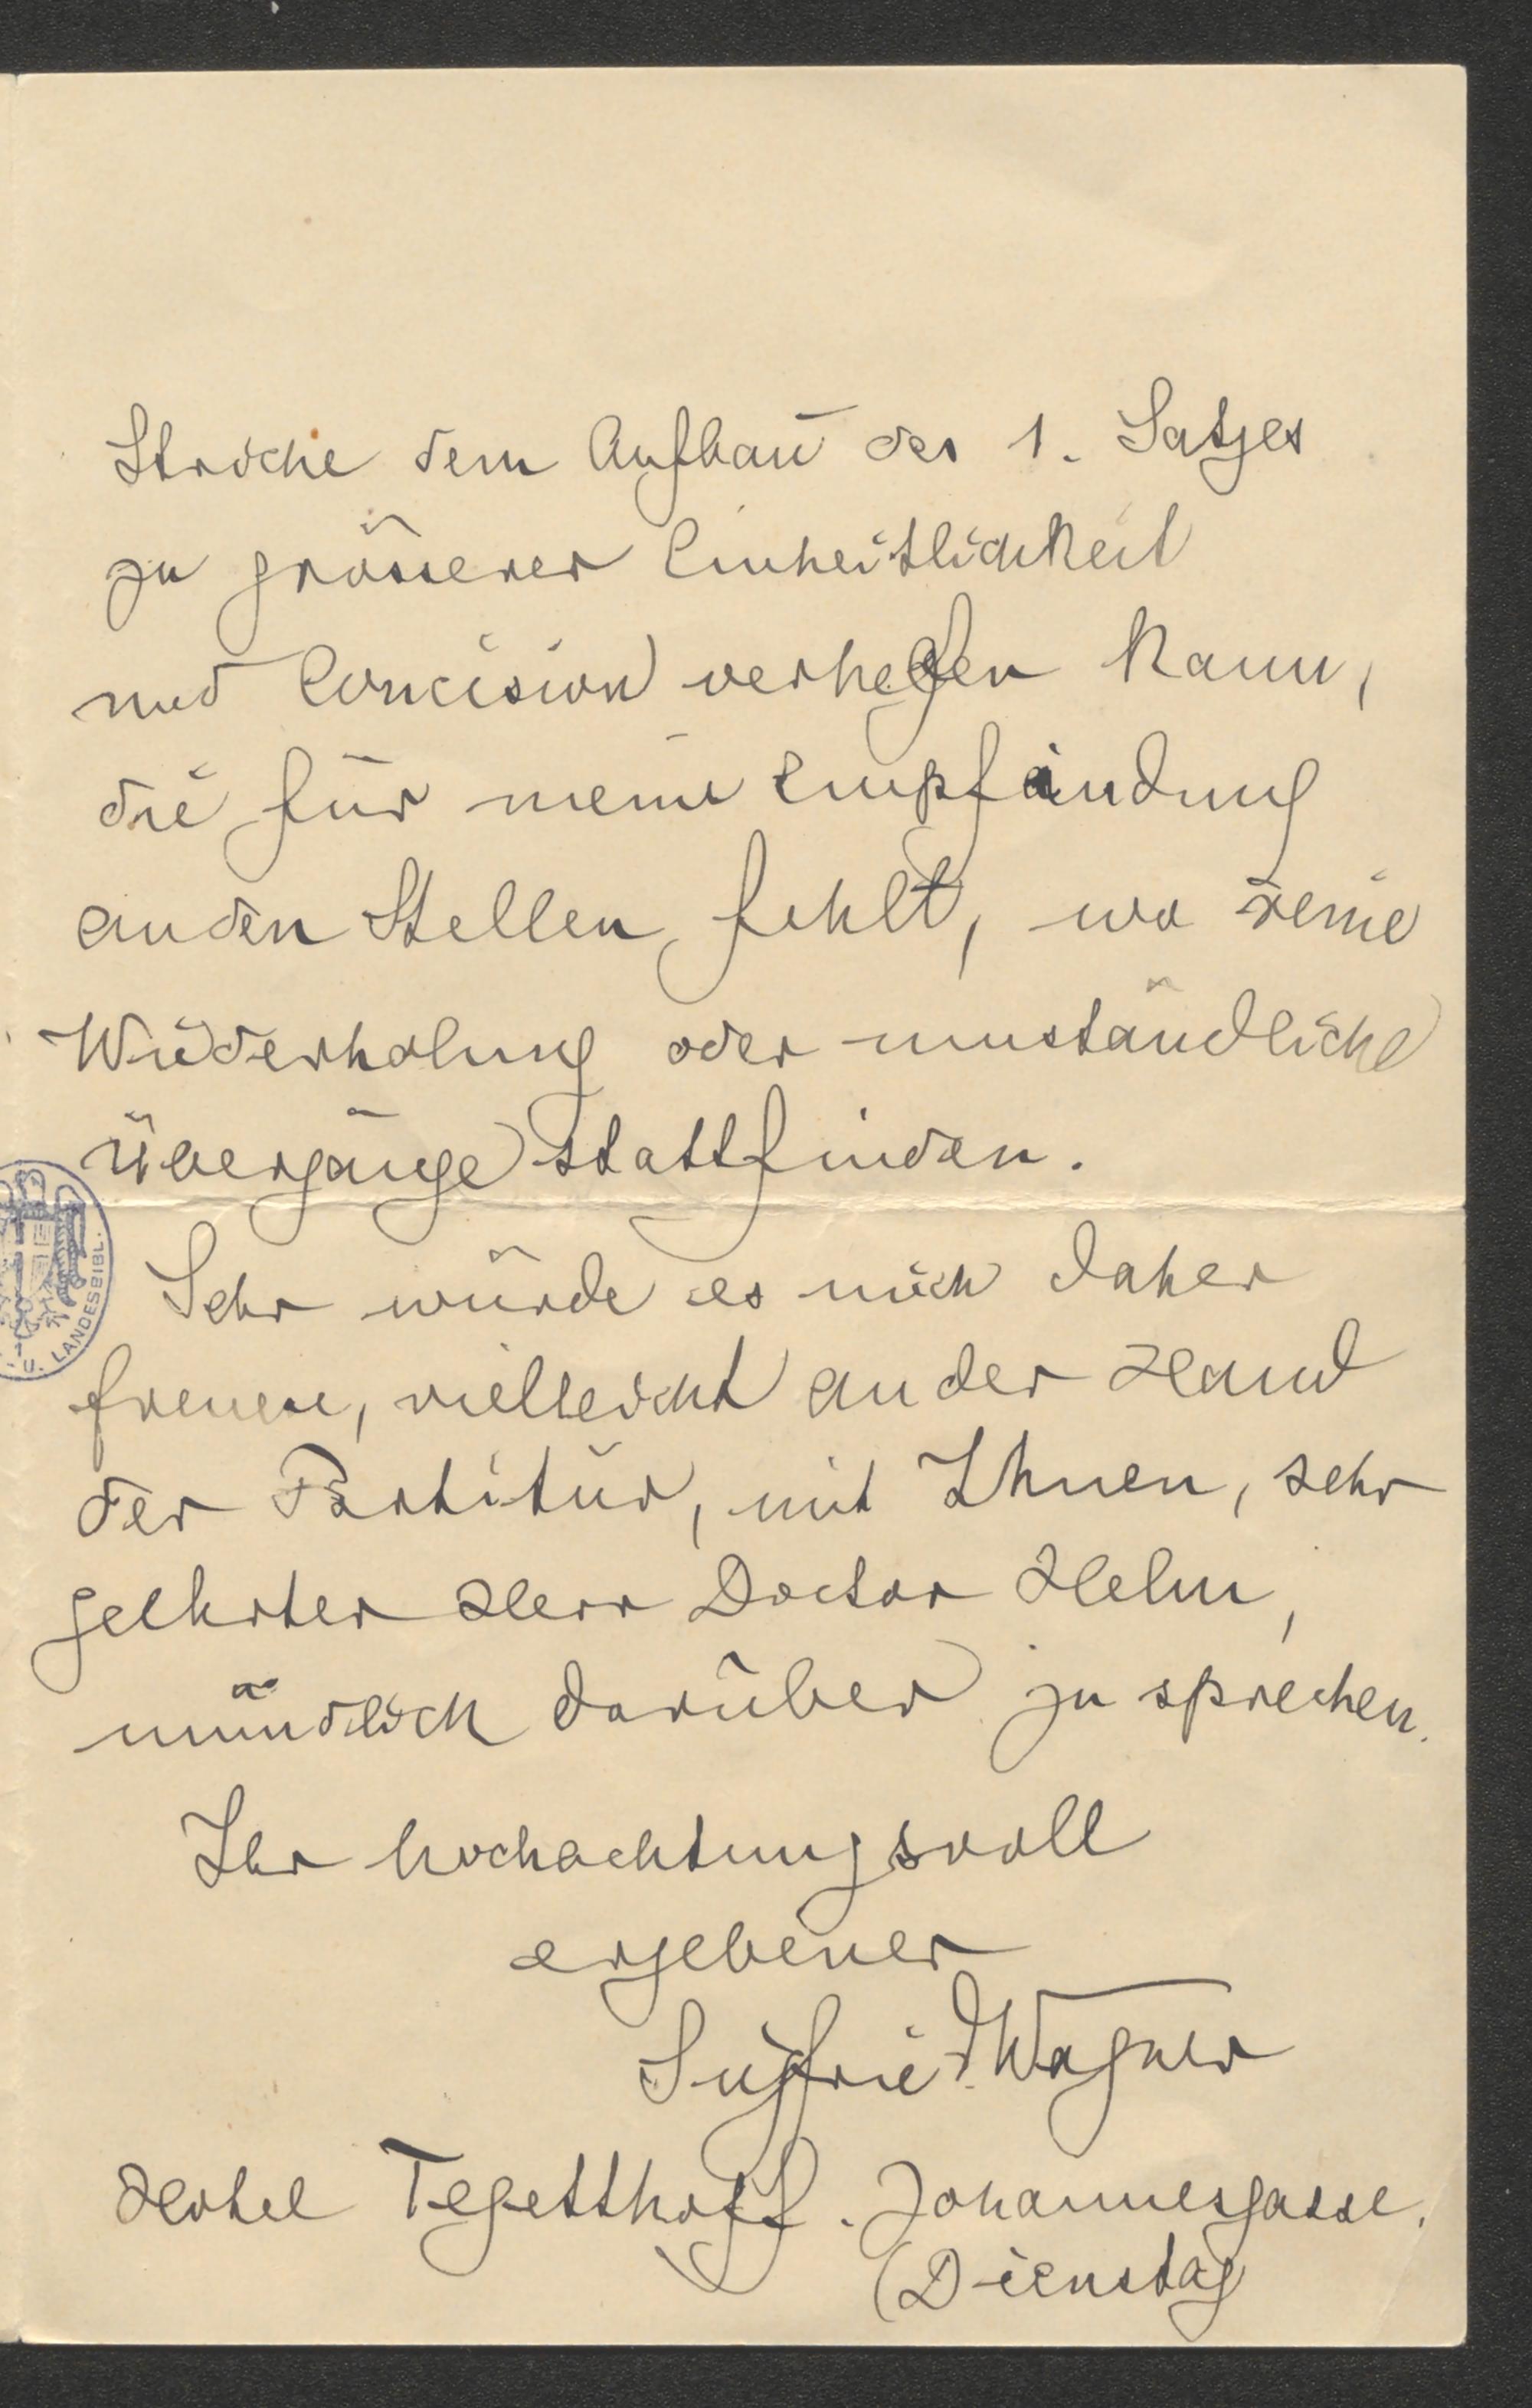 Striche dem Aufbau des 1. Satzes
zu grösserer Einheitlichkeit
und Concision verhelfen kann,
die für meine Empfindung
an den Stellen fehlt, wo reine
Wiederholung oder umständliche
Übergänge stattfinden.
U. LANDESBIBL.
Sehr würde es mich daher
freuen, vielleicht an der Hand
der Partitur, mit Ihnen, sehr
geehrter Herr Doctor Helm,
mündlich darüber zu sprechen.
Ihr hochachtungsvoll
ergebener
Siegfried Wagner
Hotel Tegetthoff. Johannesgasse.
(Dienstag